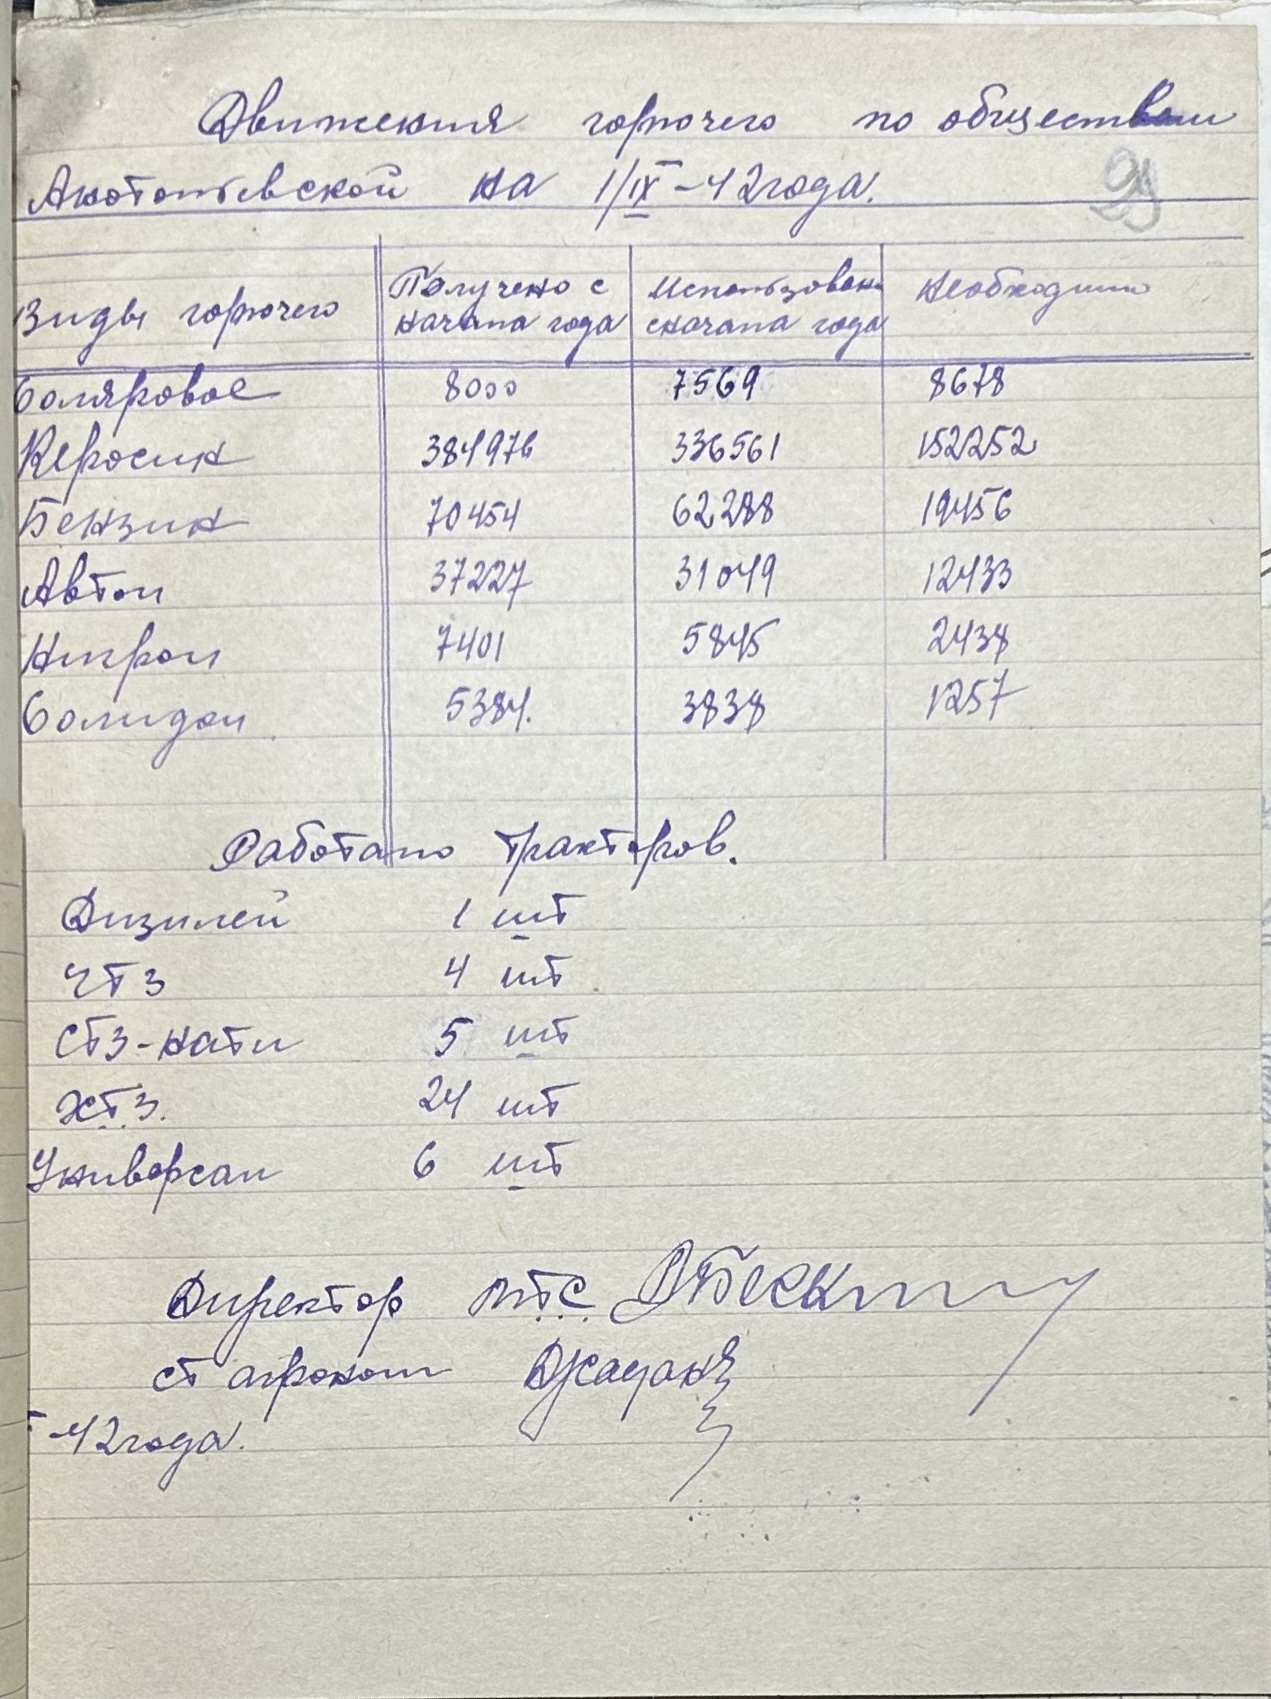 Движения горючего по обществам
на 1/IX-42 года.
29
Виды горючего Получено с начала года Использован сначала года Необходимо
Соляровое 8000 7569 8678
Керосин 384976 336561 152252
Бензин 70454 62288 19456
Автол 37227 31049 12433
Нигрол 7401 5845 2438
Солидол 5384. 3838 1257
Работало тракторов.
Дизилей 1 шт
ЧТЗ 4 шт
СТЗ-нати 5 шт
ХТЗ. 24 шт
Универсал 6 шт
Директор МТС
ст агроном
-42 года.